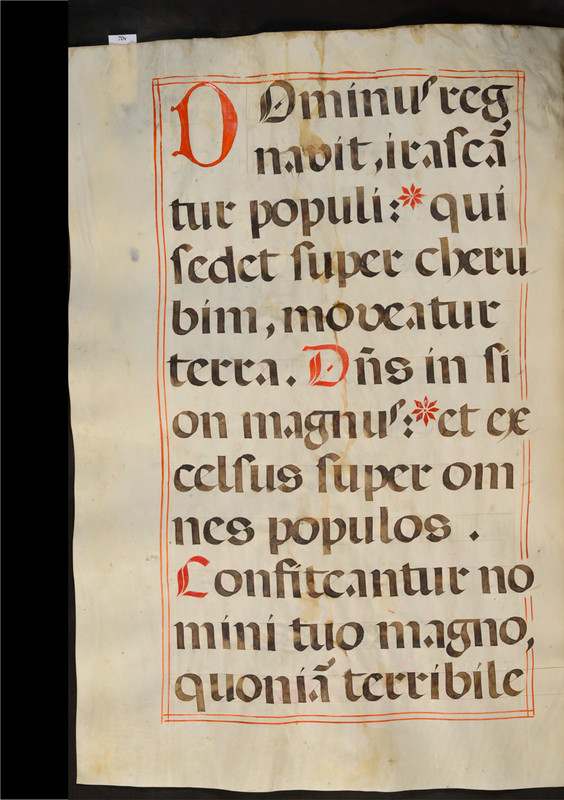 70v
DOminuſ reg
navit, iraſcã
tur populi:* qui
ſedet ſuper cheru
bim, moveatur
terra. Dñs in ſi
on magnuſ:* et ex
celſus ſuper om
nes populos .
Confiteantur no
mini tuo magno,
quoniã terribile